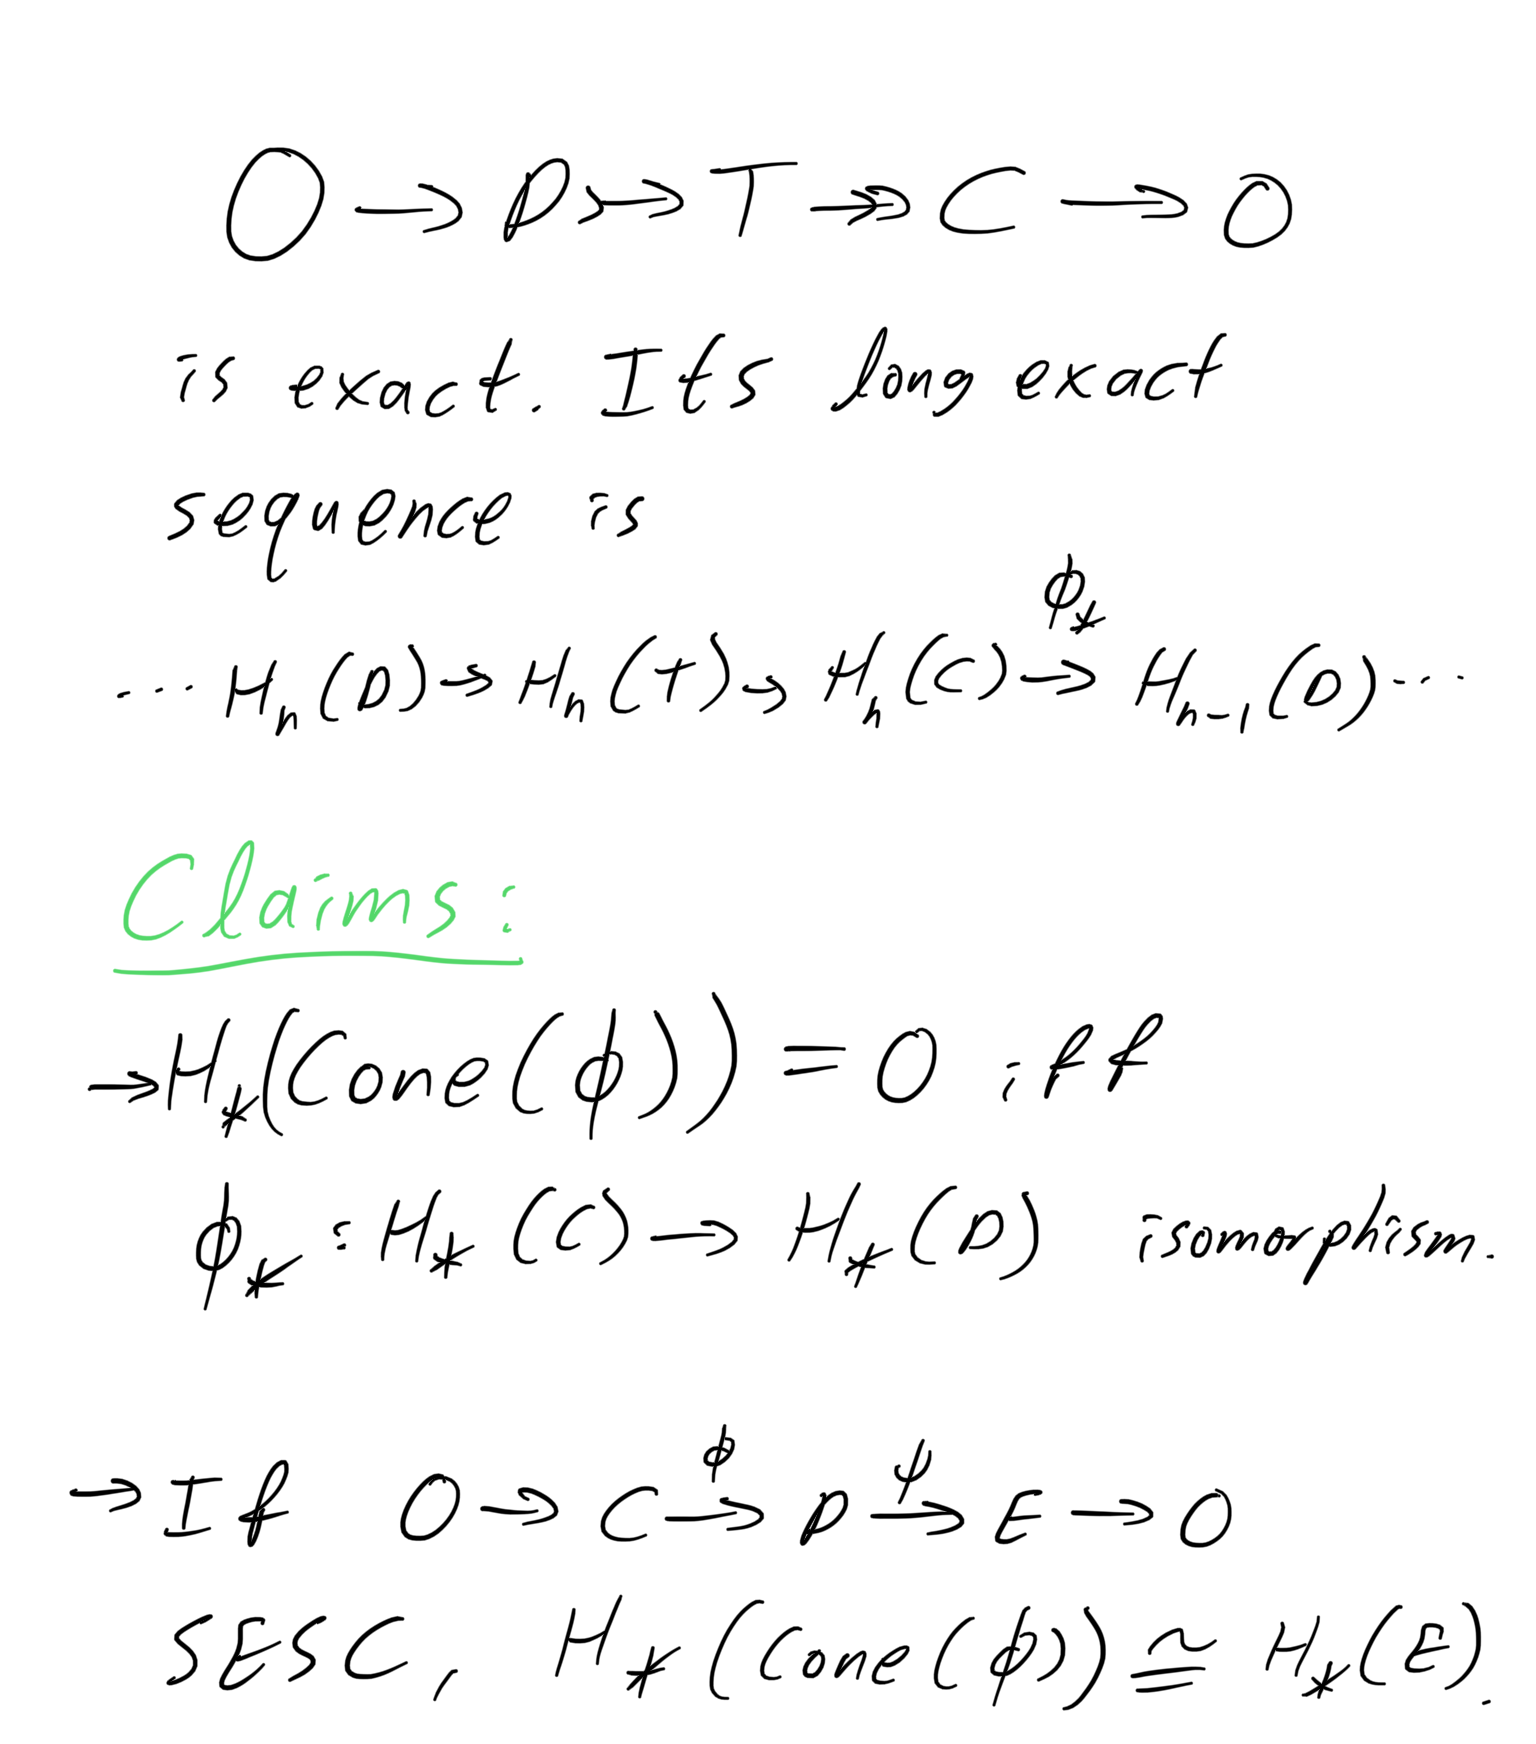 0 → D ↣ T ↠ C → 0
is exact. Its long exact
sequence is
··· Hₙ(D) → Hₙ(T) → Hₙ(C) →^{ϕ_*} Hₙ₋₁(D) ···
Claims:
→ H_*(Cone(ϕ)) = 0 iff
ϕ_* : H_*(C) → H_*(D) isomorphism.
→ If 0 → C →^{ϕ} D →^{ψ} E → 0
SESC, H_*(Cone(ϕ)) ≅ H_*(E).